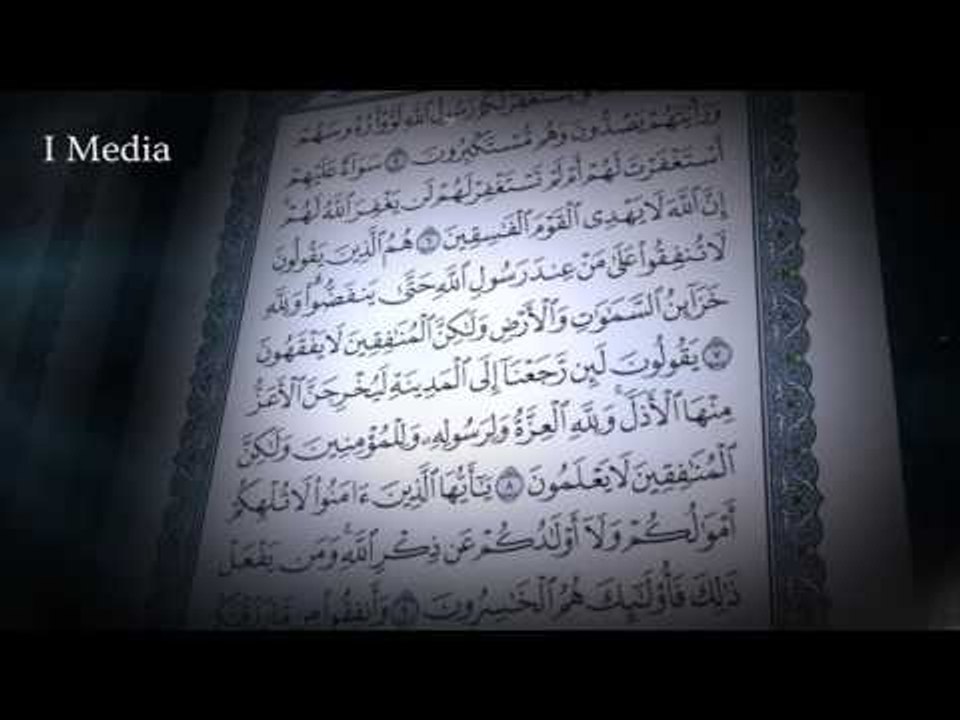 I Media
يستغفر لكم رسول الله لووا رءوسهم
ورأيتهم يصدون وهم مستكبرون ٥ سواء عليهم
أستغفرت لهم أم لم تستغفر لهم لن يغفر الله لهم
إن الله لا يهدي القوم الفسقين ٦ هم الذين يقولون
لا تنفقوا على من عند رسول الله حتى ينفضوا ولله
خزاين السموت والأرض ولكن المنفقين لا يفقهون
٧ يقولون لين رجعنا إلى المدينة ليخرجن الأعز
منها الأذل ولله العزة ولرسوله وللمؤمنين ولكن
المنفقين لا يعلمون ٨ يأيها الذين ءامنوا لا تلهكم
أمولكم ولا أولدكم عن ذكر الله ومن يفعل
ذلك فأوليك هم الخسرون ٩ وأنفقوا من